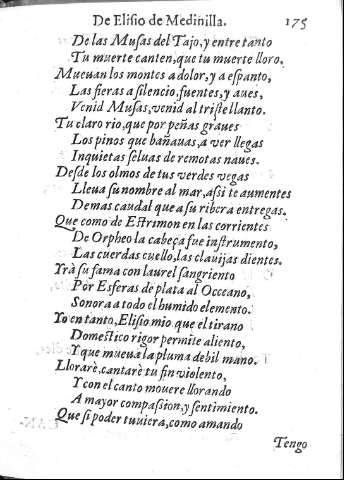 De Elisio de Medinilla. 175
De las Musas del Tajo, y entre tanto
Tu muerte canten, que tu muerte lloro.
Mueuan los montes a dolor, y a espanto,
Las fieras a silencio, fuentes, y aues,
Venid Musas, venid al triste llanto.
Tu claro rio, que por peñas graues
Los pinos que bañauas, a ver llegas
Inquietas seluas de remotas naues.
Desde los olmos de tus verdes vegas
Lleua su nombre al mar, assi te aumentes
De mas caudal que a su ribera entregas.
Que como de Estrimon en las corrientes
De Orpheo la cabeça fue instrumento,
Las cuerdas cuello, las clauijas dientes.
Yrà su fama con laurel sangriento
Por Esferas de plata al Occeano,
Sonora a todo el humido elemento.
Yo en tanto, Elisio mio que el tirano
Domestico rigor permite aliento,
Y que mueua la pluma debil mano.
Llorarè, cantarè tu fin violento,
Y con el canto mouere llorando
A mayor compassion, y sentimiento.
Que si poder tuuiera, como amando
Tengo